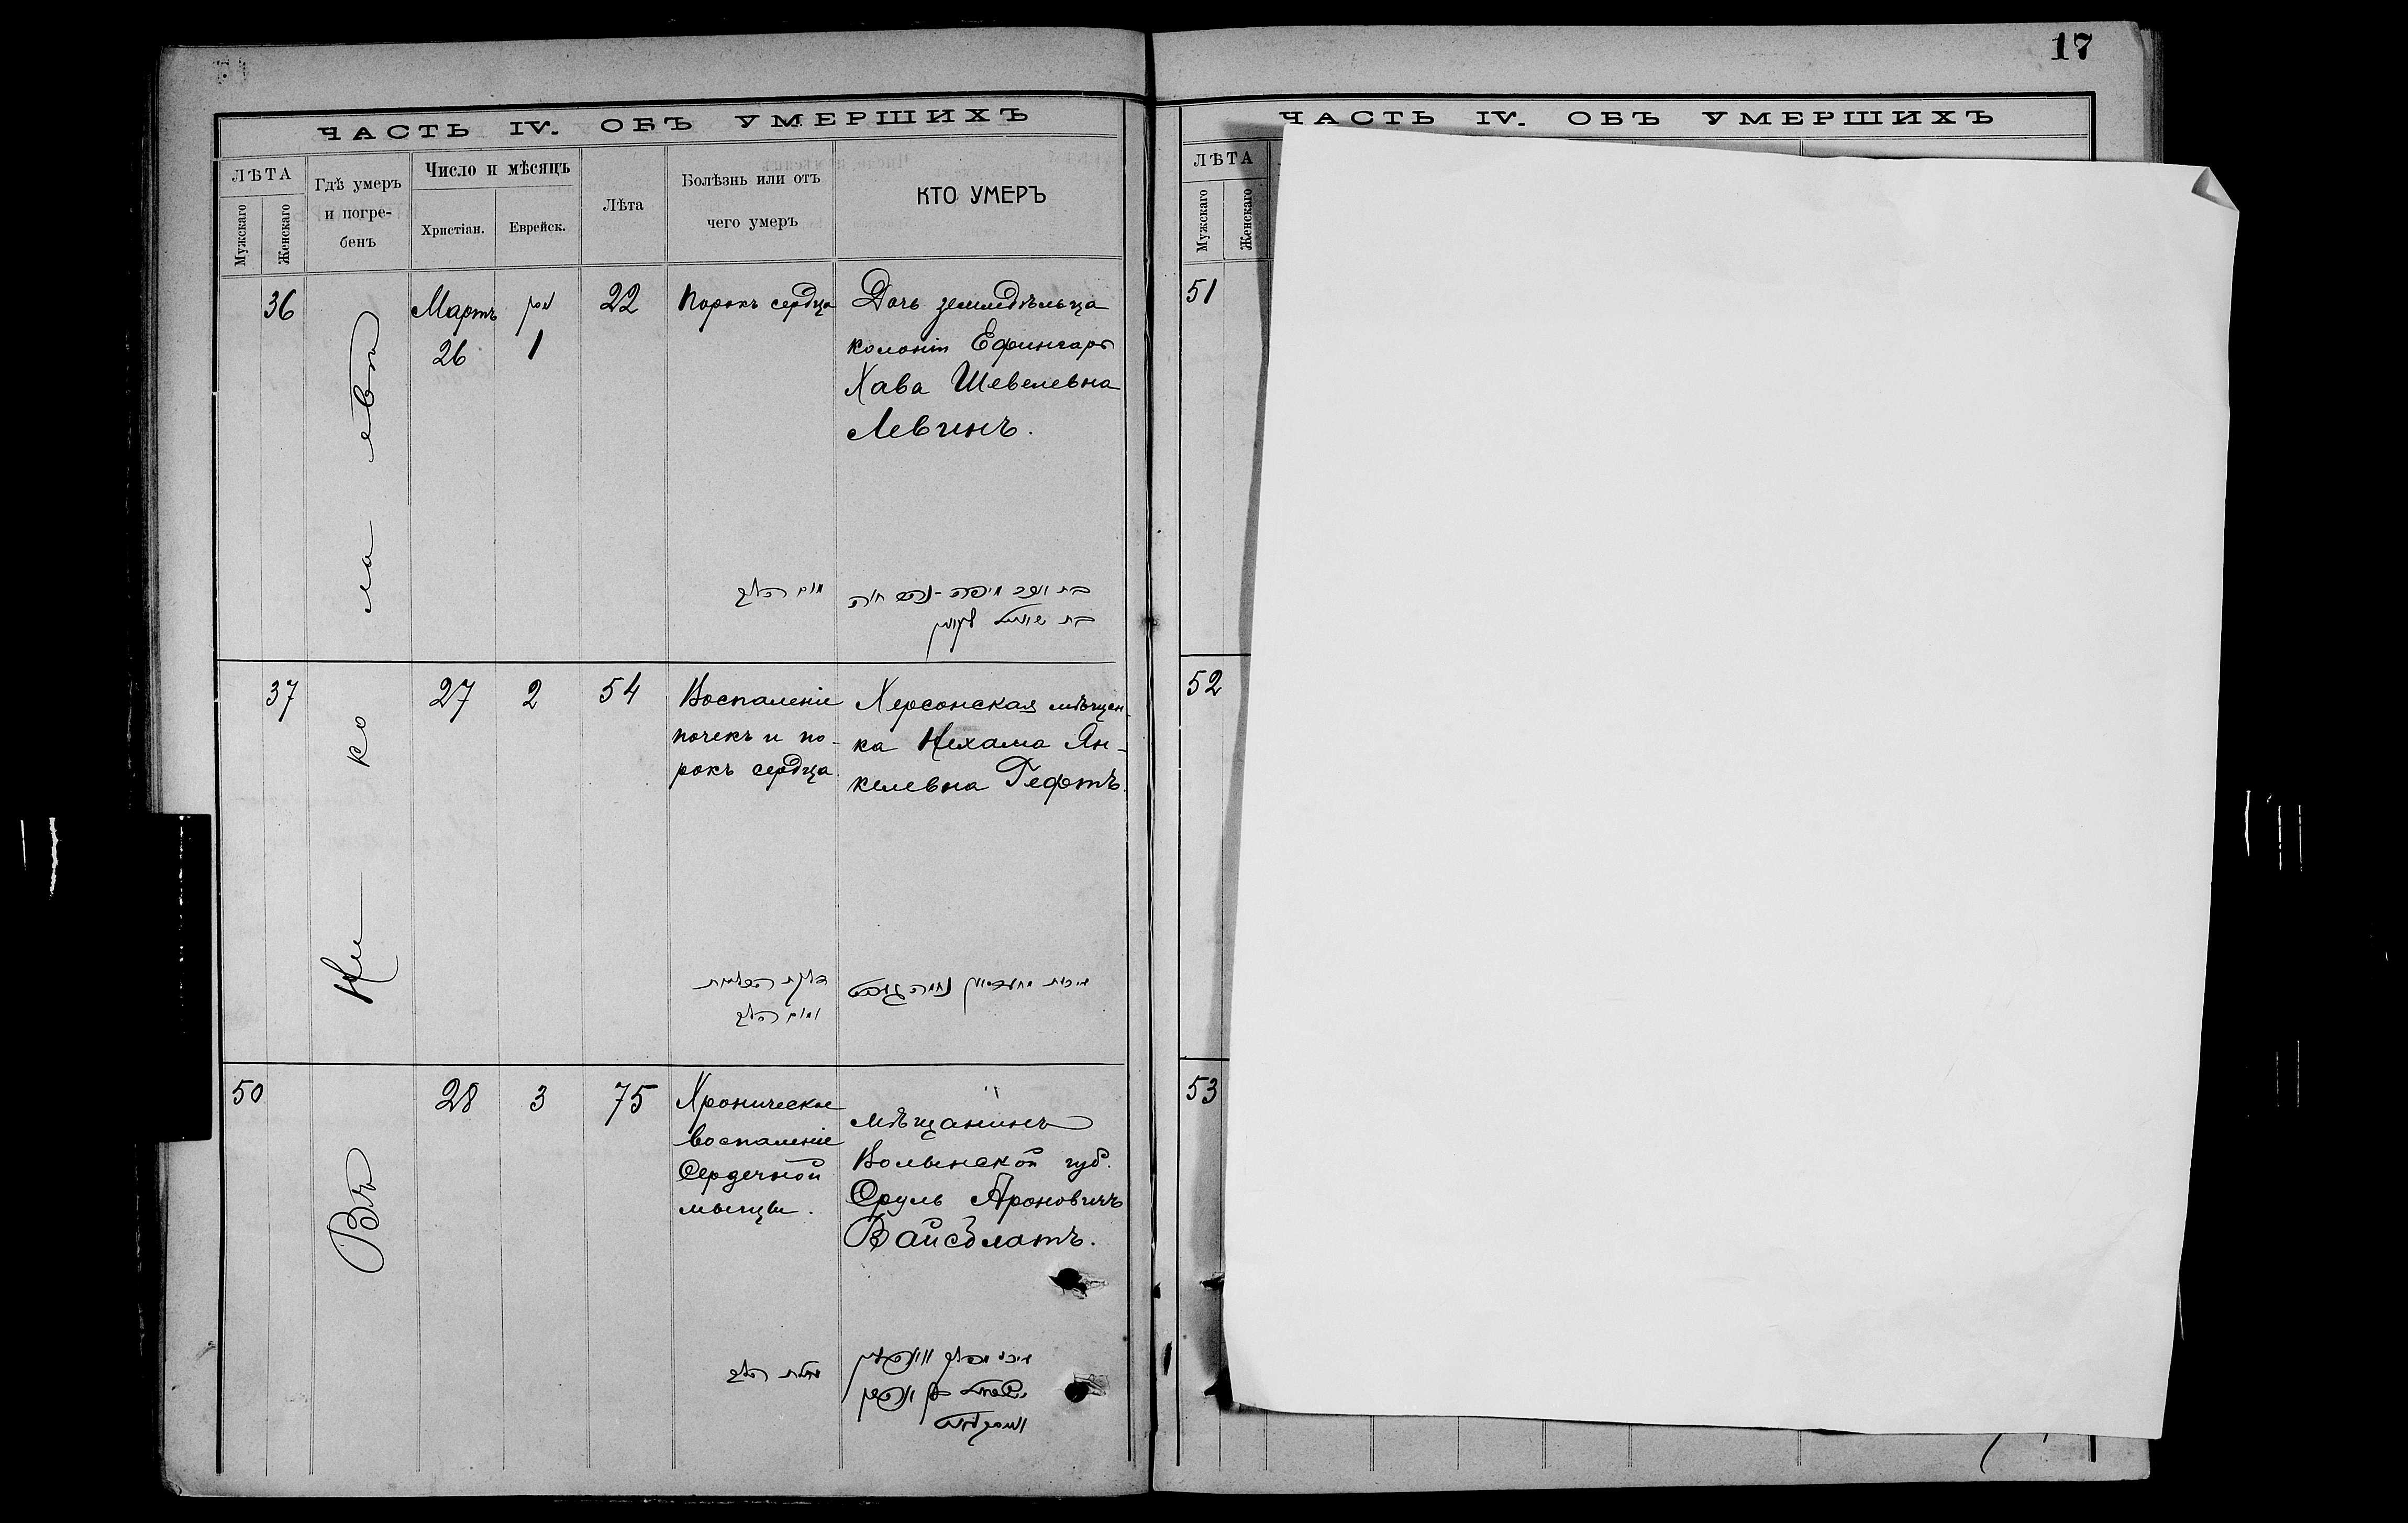 17
ЧАСТЬ IV. ОБЪ УМЕРШИХЪ
ЛѢТА
Мужскаго
Женскаго
Гдѣ умеръ
и погре-
бенъ
Число и мѣсяцъ
Христіан.
Еврейск.
Лѣта
Болѣзнь или отъ
чего умеръ
КТО УМЕРЪ
36
Мартъ
26
1
22
Порокъ сердца
Дочь земледѣльца
колоніи Ефингаръ
Хава Шевелевна
Левинъ.
מום הלב
37
27
2
54
Воспаленіе
почекъ и по-
рокъ сердца
Херсонская мѣщан-
ка Нехама Ян-
келевна Гефтъ.
ומום הלב
50
28
3
75
Хроническое
воспаленіе
Сердечной
мышцы.
мѣщанинъ
Волынской губ.
Сруль Ароновичъ
Вайсблатъ.
מחלת הלב
Въ Ни ко ла евѣ
ЧАСТЬ IV. ОБЪ УМЕРШИХЪ
ЛѢТА
Мужскаго
Женскаго
51
52
53